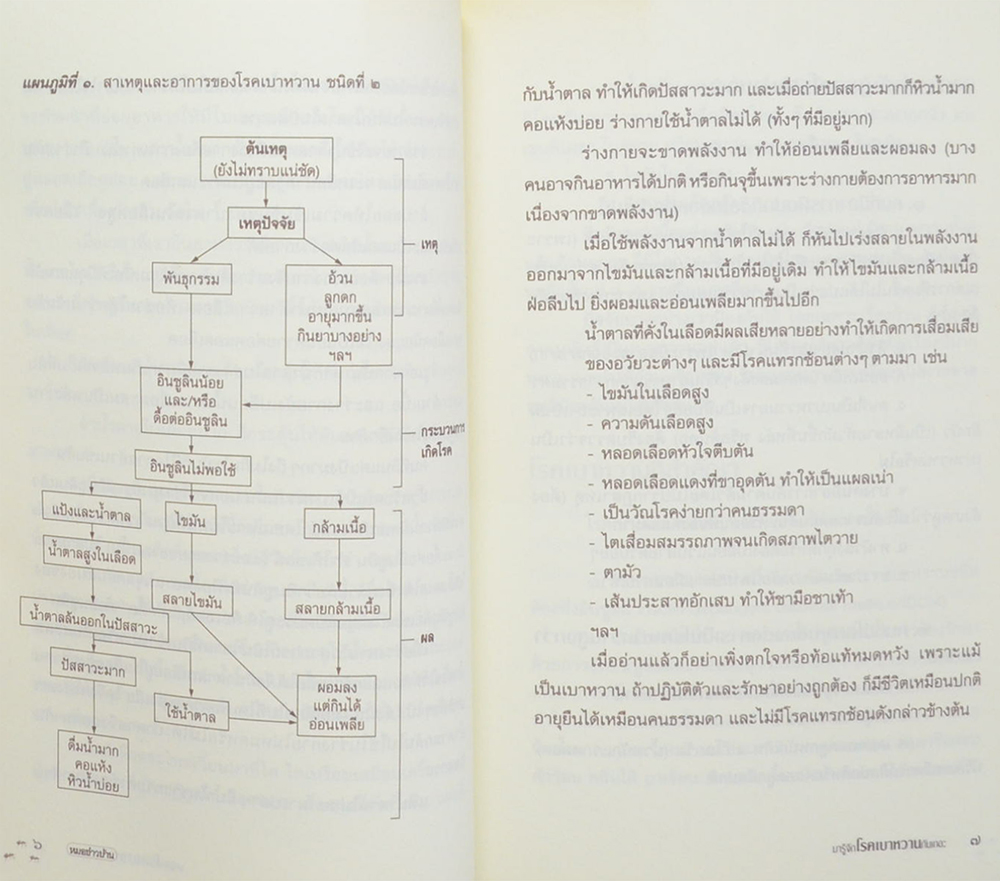 แผนภูมิที่ ๑. สาเหตุและอาการของโรคเบาหวาน ชนิดที่ ๒
ต้นเหตุ
(ยังไม่ทราบแน่ชัด)
เหตุปัจจัย
เหตุ
พันธุกรรม
อ้วน
ลูกดก
อายุมากขึ้น
กินยาบางอย่าง
ฯลฯ
อินซูลินน้อย
และ/หรือ
ดื้อต่ออินซูลิน
กระบวนการ
เกิดโรค
อินซูลินไม่พอใช้
แป้งและน้ำตาล
ไขมัน
กล้ามเนื้อ
น้ำตาลสูงในเลือด
สลายไขมัน
สลายกล้ามเนื้อ
น้ำตาลล้นออกในปัสสาวะ
ผล
ปัสสาวะมาก
ใช้น้ำตาล
ผอมลง
แต่กินได้
อ่อนเพลีย
ดื่มน้ำมาก
คอแห้ง
หิวน้ำบ่อย
๖
หมอชาวบ้าน
กับน้ำตาล ทำให้เกิดปัสสาวะมาก และเมื่อถ่ายปัสสาวะมากก็หิวน้ำมาก
คอแห้งบ่อย ร่างกายใช้น้ำตาลไม่ได้ (ทั้งๆ ที่มีอยู่มาก)
ร่างกายจะขาดพลังงาน ทำให้อ่อนเพลียและผอมลง (บาง
คนอาจกินอาหารได้ปกติ หรือกินจุขึ้นเพราะร่างกายต้องการอาหารมาก
เนื่องจากขาดพลังงาน)
เมื่อใช้พลังงานจากน้ำตาลไม่ได้ ก็หันไปเร่งสลายในพลังงาน
ออกมาจากไขมันและกล้ามเนื้อที่มีอยู่เดิม ทำให้ไขมันและกล้ามเนื้อ
ฝ่อลีบไป ยิ่งผอมและอ่อนเพลียมากขึ้นไปอีก
น้ำตาลที่คั่งในเลือดมีผลเสียหลายอย่างทำให้เกิดการเสื่อมเสีย
ของอวัยวะต่างๆ และมีโรคแทรกซ้อนต่างๆ ตามมา เช่น
- ไขมันในเลือดสูง
- ความดันเลือดสูง
- หลอดเลือดหัวใจตีบตัน
- หลอดเลือดแดงที่ขาอุดตัน ทำให้เป็นแผลเน่า
- เป็นวัณโรคง่ายกว่าคนธรรมดา
- ไตเสื่อมสมรรถภาพจนเกิดสภาพไตวาย
- ตามัว
- เส้นประสาทอักเสบ ทำให้ชามือชาเท้า
ฯลฯ
เมื่ออ่านแล้วก็อย่าเพิ่งตกใจหรือท้อแท้หมดหวัง เพราะแม้
เป็นเบาหวาน ถ้าปฏิบัติตัวและรักษาอย่างถูกต้อง ก็มีชีวิตเหมือนปกติ
อายุยืนได้เหมือนคนธรรมดา และไม่มีโรคแทรกซ้อนดังกล่าวข้างต้น
มารู้จักโรคเบาหวานกันเถอะ ๗